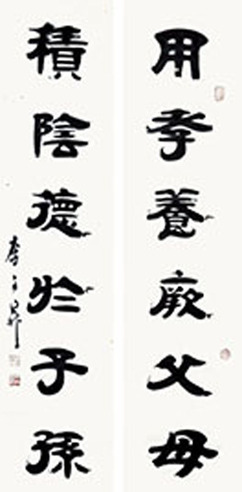 用孝養厥父母
積陰德於子孫